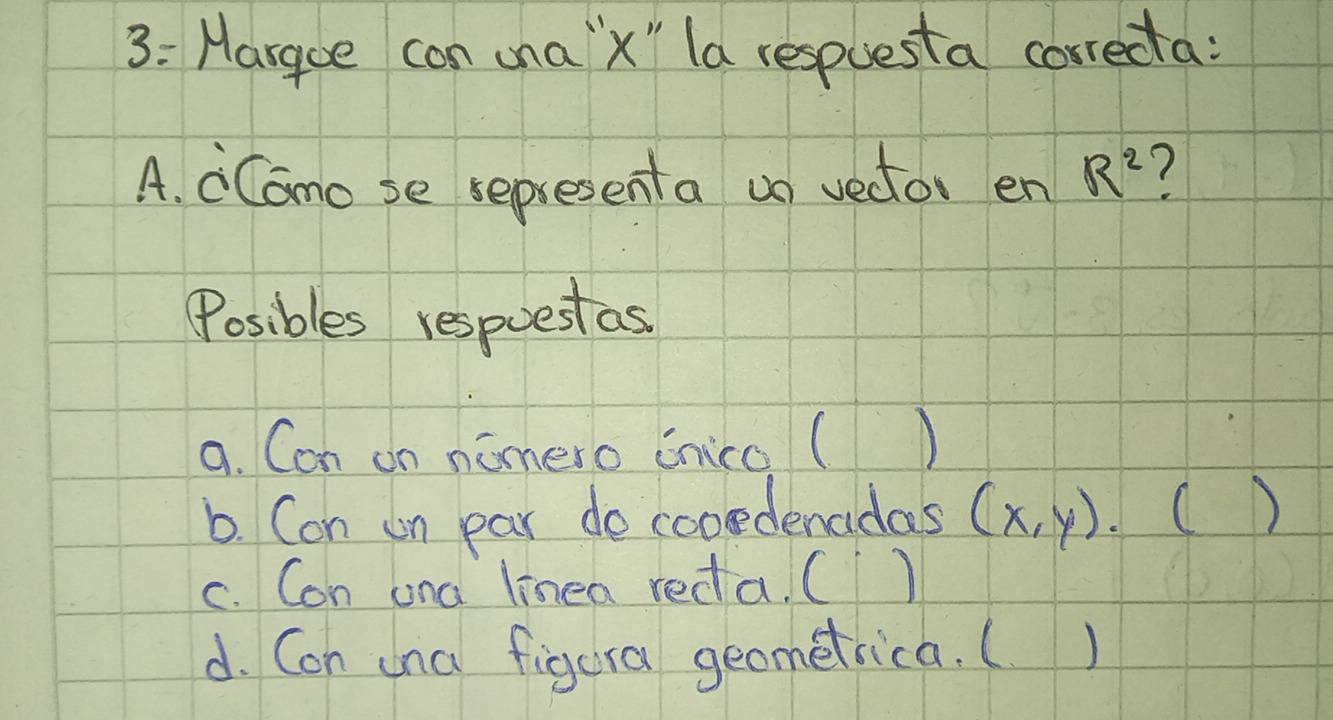 3.- Marque con una "X" la respuesta correcta:
A. ¿Cómo se representa un vector en R²?
Posibles respuestas.
a. Con un número único ( )
b. Con un par de cooedenadas (x,y). ( )
c. Con una línea recta. ( )
d. Con una figura geométrica. ( )